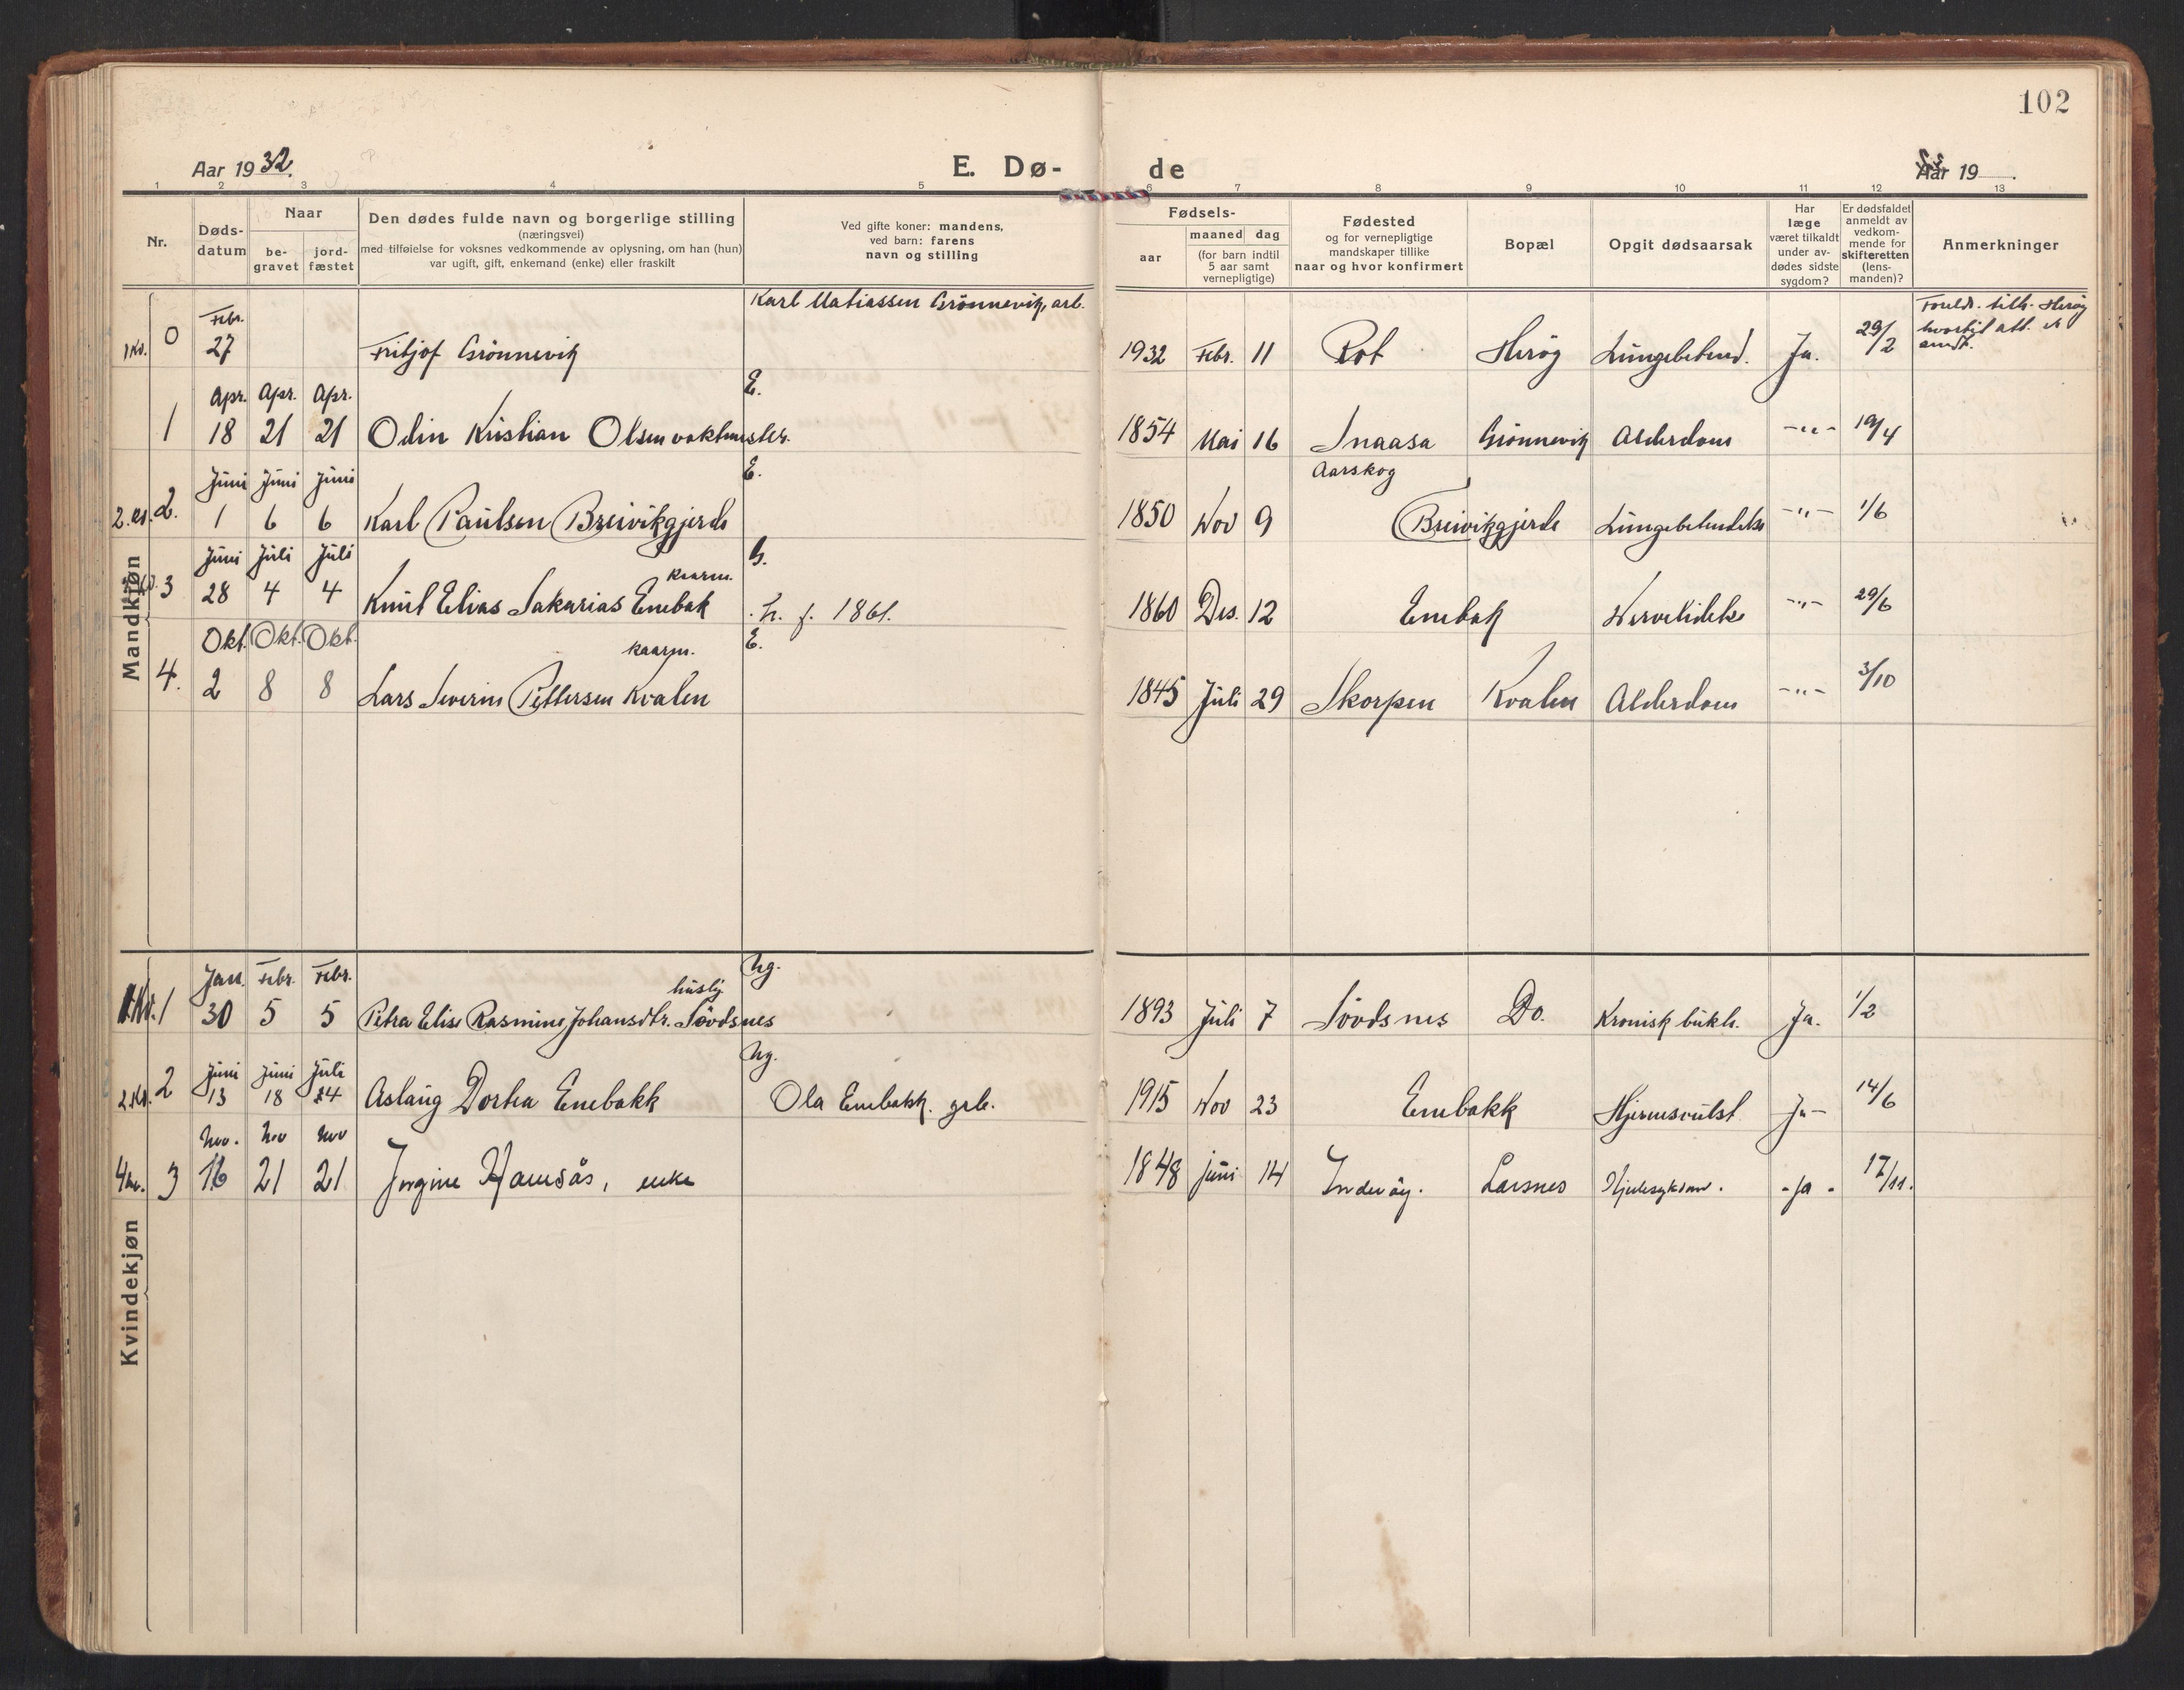 102
Aar 1932.
E. Dø-
de
Aar 19
1 2 3 4 5 6 7 8 9 10 11 12 13
Nr.
Døds-
datum
Naar
be-
gravet
jord-
fæstet
Den dødes fulde navn og borgerlige stilling
(næringsvei)
med tilføielse for voksnes vedkommende av oplysning, om han (hun)
var ugift, gift, enkemand (enke) eller fraskilt
Ved gifte koner: mandens,
ved barn: farens
navn og stilling
Fødsels-
aar
maaned dag
(for barn indtil
5 aar samt
vernepligtige)
Fødested
og for vernepligtige
mandskaper tillike
naar og hvor konfirmert
Bopæl
Opgit dødsaarsak
Har
læge
været tilkaldt
under av-
dødes sidste
sygdom?
Er dødsfaldet
anmeldt av
vedkom-
mende for
skifteretten
(lens-
manden)?
Anmerkninger
Mandkjøn
Karl Matiassen Grönnevik, arb.
1 Kv. 0 Febr. 27 Fritjof Grönnevik 1932 Febr. 11 Rot Heröy Lungebetend. Ja. 29/2
Apr. Apr. Apr. E.
1 18 21 21 Odin Kristian Olsen vaktmester. 1854 Mai 16 Snaasa Grönnevik Alderdom -"- 19/4
Juni Juni Juni E. Aarskog
2. kv. 2. 1 6 6 Karl Paulsen Breivikgjerde 1850 Nov 9 Breivikgjerde Lungebetendelse -"- 1/6
Juni Juli Juli kaarm. G.
3 28 4 4 Knut Elias Sakarias Enebak h. f. 1861. 1860 Des. 12 Enebak Nervelidelse -"- 29/6
Okt. Okt. Okt. kaarm. E.
4. 2 8 8 Lars Severin Pettersen Kvalen 1845 Juli 29 Skorpen Kvalen Alderdom -"- 3/10
Kvindekjøn
Jan. Febr. Febr. Ug.
1 Kv. 1 30 5 5 Petra Elise Rasmine Johansdtr. Sövdsnes 1893 Juli 7 Sövdsnes Do. Kronisk bukh. Ja. 1/2
Juni Juni Juli Ug.
2 Kv. 2 13 18 24 Aslaug Dortea Enebakk Ola Enebakk. grb. 1915 Nov 23 Enebakk Hjernesvulst Ja- 14/6
Nov. Nov Nov
4 kv. 3 16 21 21 Jorgine Hamsås, enke 1848 juni 14 Inderöy. Larsnes Hjertesykdom. - ja - 17/11.